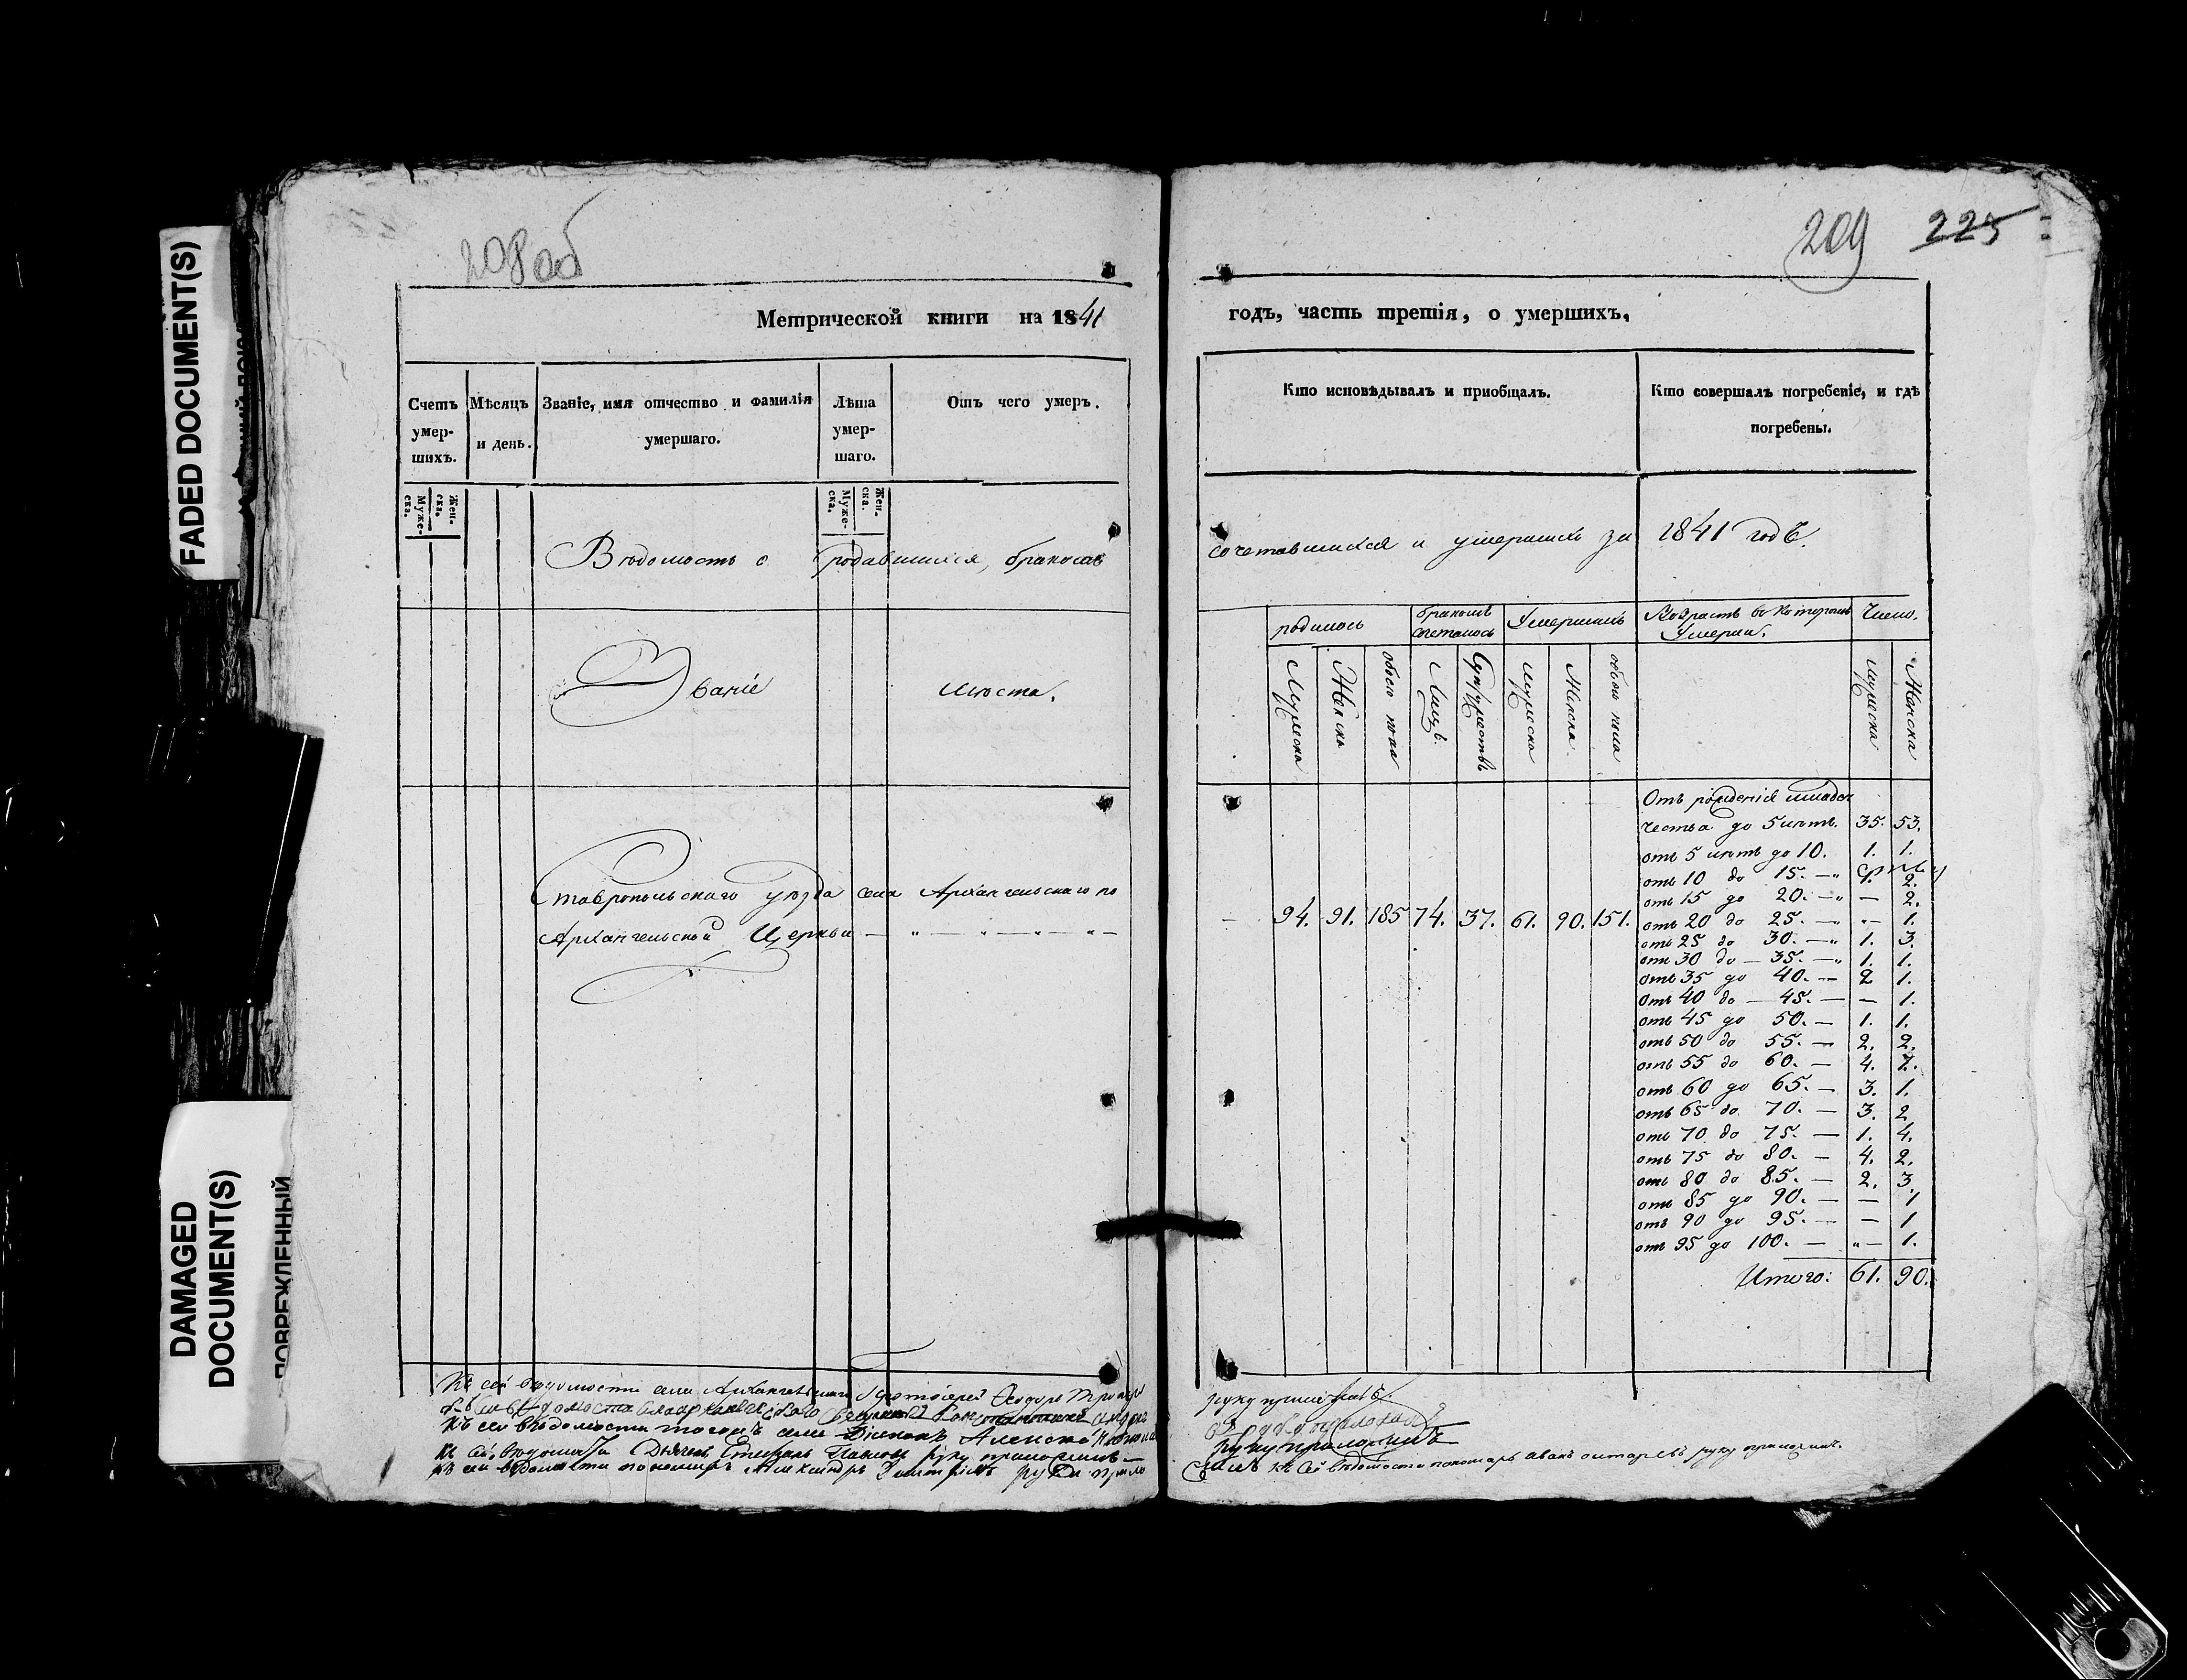 FADED DOCUMENT(S)
DAMAGED
DOCUMENT(S)
ПОВРЕЖДЕННЫЙ
208 об
209 225
Метрической книги на 1841
годъ, часть третія, о умершихъ.
Счетъ умер-шихъ.
Муже-ска.
Жен-ска.
Мѣсяцъ и день.
Званіе, имя отчество и фамилія умершаго.
Лѣта умер-шаго.
Муже-ска.
Жен-ска.
Отъ чего умеръ.
Кто исповѣдывалъ и приобщалъ.
Кто совершалъ погребеніе, и гдѣ погребены.
Вѣдомость о родавшихся, бракосав
сочетавшихся и умершихъ за 1841 годъ.
Званіе
мѣста.
родилось
бракомъ сочеталось
Умершихъ
Возрастъ въ которомъ Умерли.
Число.
Мужеска
Женска
обоего пола
Лицъ.
Супружествъ
мужеска
Женска.
обоего пола
мужеска
Женска
Ставропольскаго уѣзда села Архангельскаго по
Архангельской Церкви — " — " — " — " —
— 94. 91. 185 74. 37. 61. 90. 151.
Отъ рожденія младен
чества до 5 лѣтъ. 35. 53.
отъ 5 лѣтъ до 10. 1. 1.
отъ 10 до 15. — " 2.
отъ 15 до 20. — " — 2.
отъ 20 до 25. — " — 1.
отъ 25 до 30. — " 1. 3.
отъ 30 до — 35. — " 1. 1.
отъ 35 до 40. — 2 1.
отъ 40 до — 45. — — 1.
отъ 45 до 50. — 1. 1.
отъ 50 до 55. — 2. 2.
отъ 55 до 60. — 4. 7.
отъ 60 до 65. — 3. 1.
отъ 65 до 70. — 3. 2
отъ 70 до 75. — 1. 4.
отъ 75 до 80. — 4. 2.
отъ 80 до 85. — 2. 3
отъ 85 до 90. — — 1
отъ 90 до 95. — — 1
отъ 95 до 100. — " — 1.
Итого: 61. 90.
Къ сей вѣдомости села Архангельскаго Протоіерей Ѳеодоръ руку приложилъ.
Къ сей вѣдомости того жъ села Діаконъ Алексѣй руку приложилъ
Къ сей вѣдомости Дьячекъ Степанъ Павловъ руку приложилъ —
Къ сей вѣдомости пономарь Александръ Димитріевъ руку прило
жилъ Къ сей вѣдомости пономарь руку приложилъ.